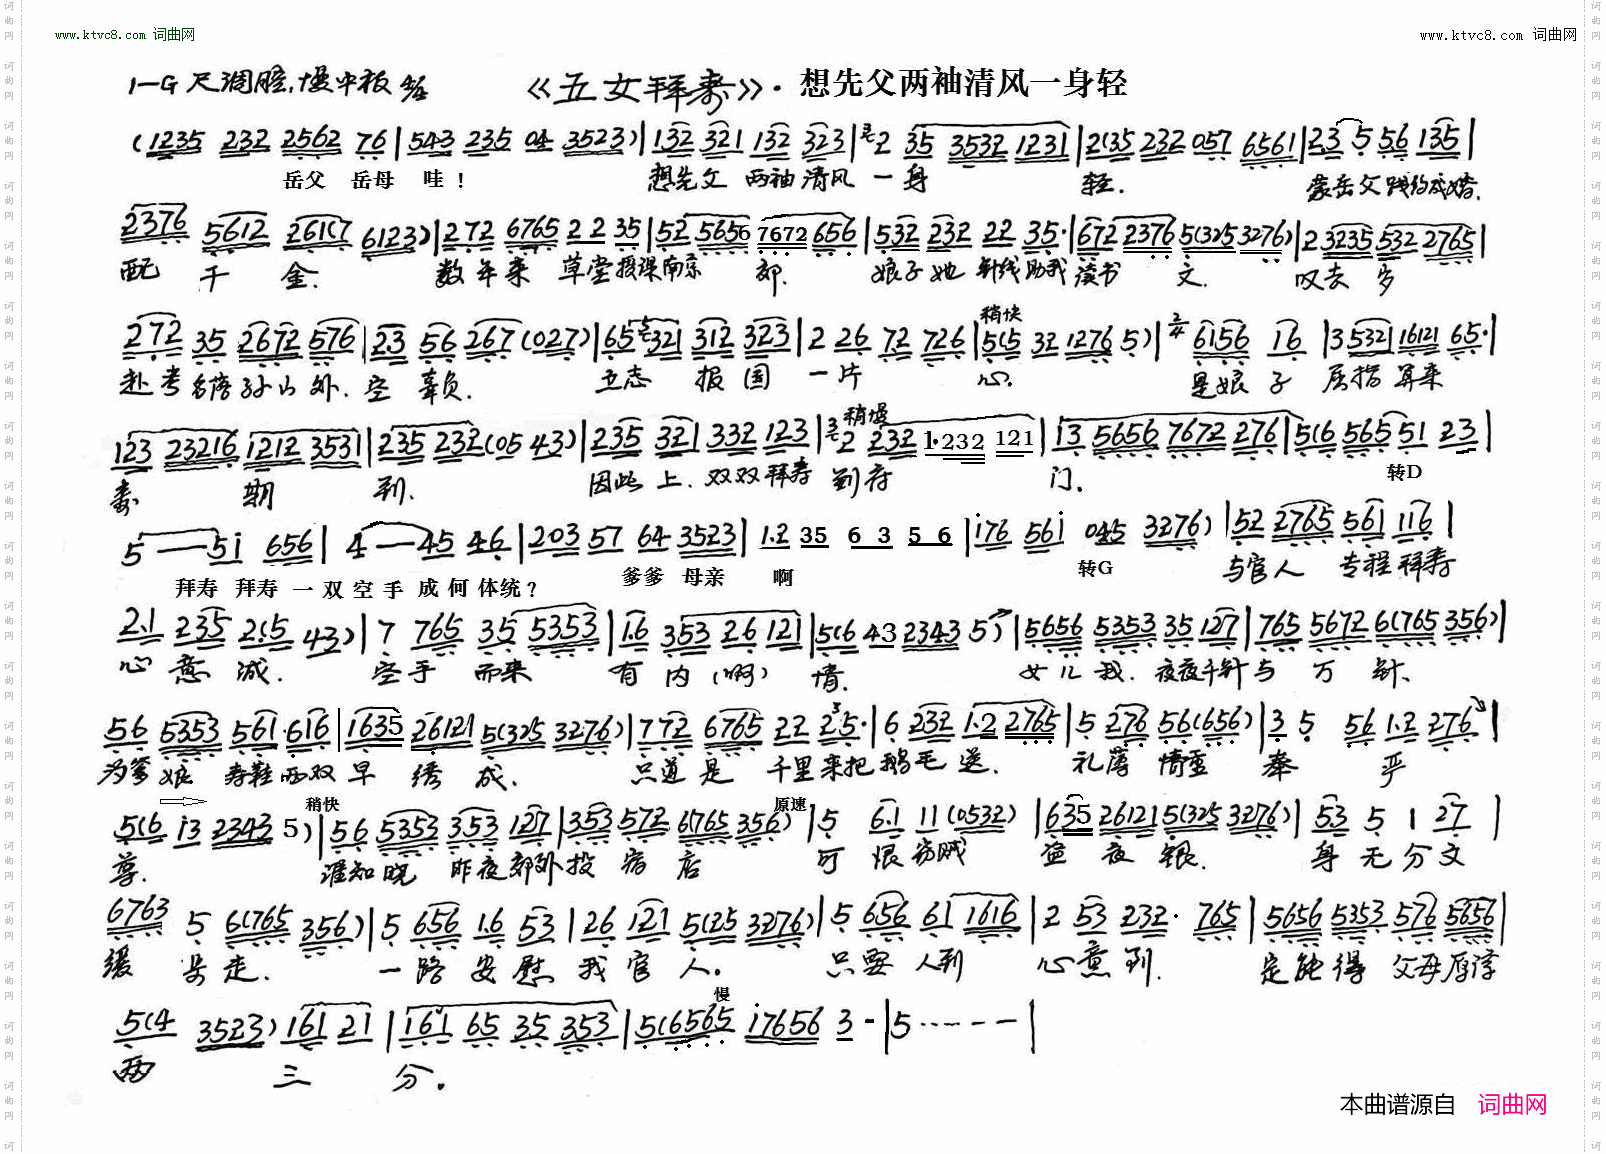 www.ktvc8.com 词曲网 www.ktvc8.com 词曲网
1=G 尺调腔,慢中板 《五女拜寿》·想先父两袖清风一身轻
(1235 232 2562 76|543 235 04 3523)|132 321 132 323|2 35 3532 1231|2(35 232 057 6561|23 5 56 135|
岳父 岳母 哇! 想先父 两袖清风 一身 轻. 蒙岳父践约成婚.
2376 5612 261(7 6123)|272 6765 22 35|52 5656 7672 656|532 232 22 35·|672 2376 5(325 3276)|2 3235 532 2765|
配 千 金. 数年来 草堂授课南京 郊. 娘子她 针线助我读书 文. 叹去 岁
稍快
272 35 2672 576|2.3 56 267(027)|65 321 312 323|2 26 72 726|5(5 32 1276 5) 2/4 6156 16|3 5321 16121 65·|
赴考名落孙山外. 空 辜负. 立志 报国 一片 心. 是娘子 屈指算来
稍慢
123 23216 1212 3531|235 232(05 43)|235 321 332 123|2 232 1·232 121|13 5656 7672 276|5(6 565 51 23|
寿 期 到. 因此上. 双双拜寿 到府 门. 转D
5——5i 656|4——45 46|203 57 64 3523|1.2 35 63 56|i76 56i 045 3276)|52 2765 561 116|
拜寿 拜寿 一双空手成何体统? 爹爹 母亲 啊 转G 与官人 专程拜寿
2.1 235 2(5 43)|7 765 35 5353|1.6 353 26 121|5(6 43 2343 5)|5656 5353 35 127|765 5672 6(765 356)|
心意诚. 空手而来 有内(啊)情. 女儿我. 夜夜千针与万针、
56 5353 561·616|1635 26121 5(325 3276)|772 6765 22 235·|6 232 1·2 2765|5 276 56(656)|3 5 56 1.2 276|
为爹娘 寿鞋两双早 绣 成. 只道是 千里来把鹅毛送. 礼薄情重 奉 严
稍快 原速
5(6 i3 2343 5)|56 5353 353 127|353 572 6(765 356)|5 6·1 11(0532)|635 26121 5(325 3276)|53 5 1 27|
尊. 谁知晓 昨夜郊外投宿店 可恨窃贼 盗夜银. 身无分文
6763 5 6(765 356)|5 656 1.6 53|26 121 5(25 3276)|5 656 61 1616|2 53 232· 765|5656 5353 576 5656|
缓步走. 一路安慰我官人。 只要人到 心意到. 定能得 父母厚谆
慢
5(4 3523) 161 21|161 65 35 353|5(6565 i7656 3-|5······--|
两 三 分.
本曲谱源自 词曲网